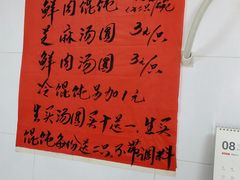 鲜肉馄饨
芝麻汤圆 3元/只
鲜肉汤圆 3元/只
冷馄饨另加1元
生买汤圆买十送一, 生买
馄饨每份送二只不带调料
08